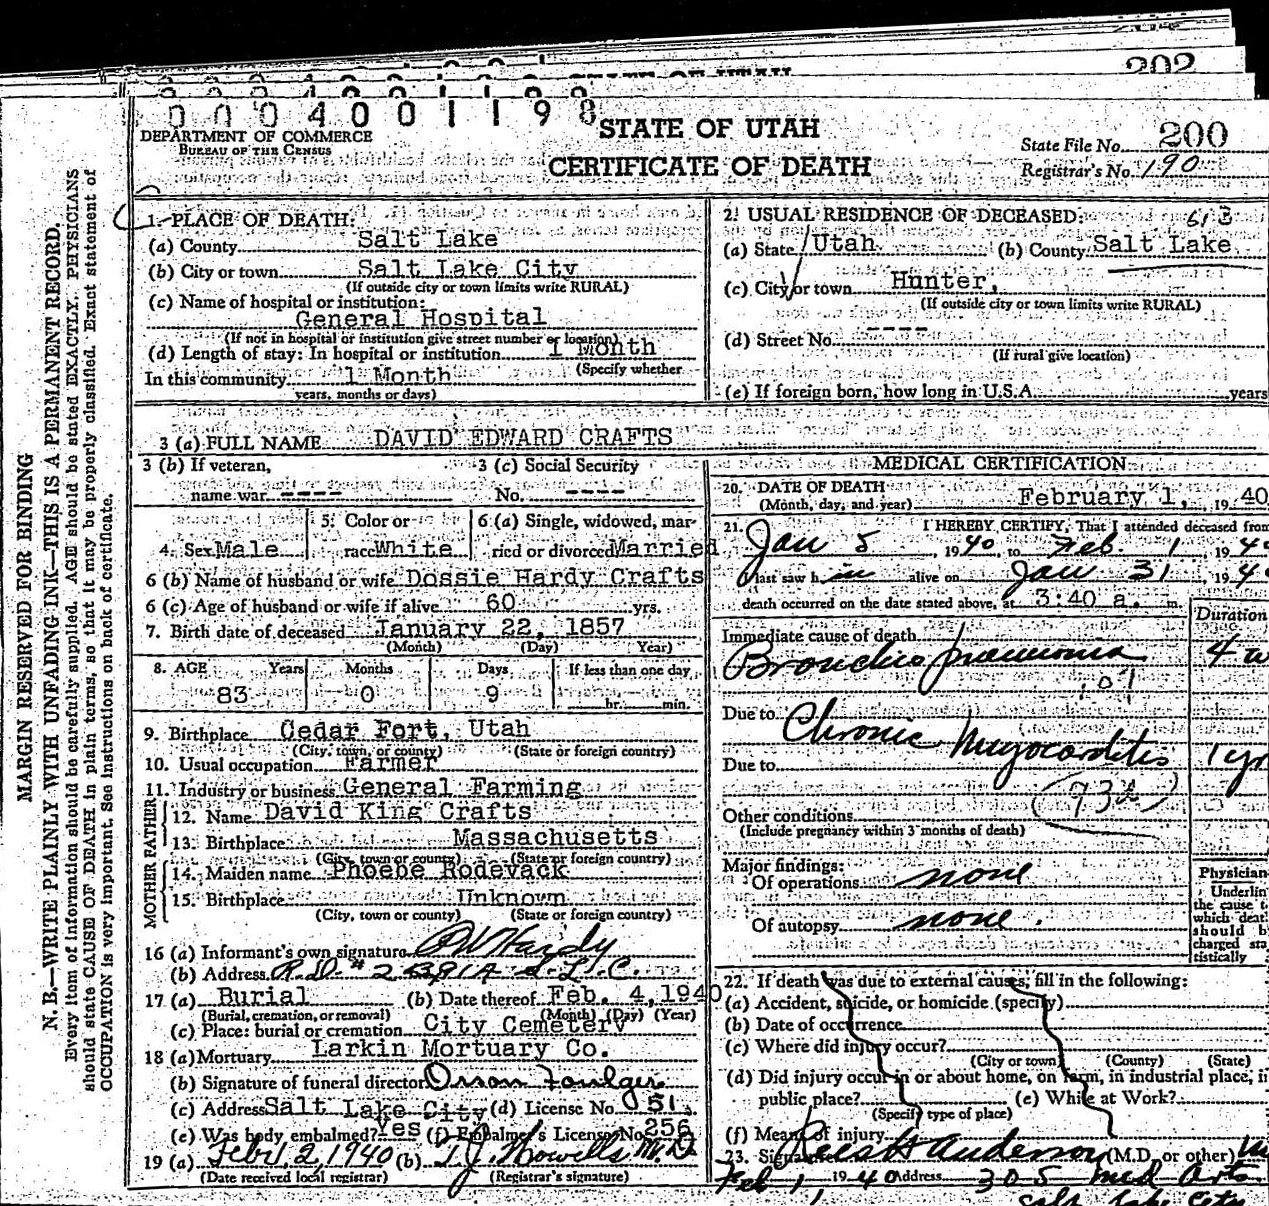 202
STATE OF UTAH
0 0 0 4 0 0 1 1 9 8
DEPARTMENT OF COMMERCE
BUREAU OF THE CENSUS
STATE OF UTAH
CERTIFICATE OF DEATH
State File No. 200
Registrar's No. 190
MARGIN RESERVED FOR BINDING
N. B.—WRITE PLAINLY WITH UNFADING INK—THIS IS A PERMANENT RECORD.
Every item of information should be carefully supplied. AGE should be stated EXACTLY. PHYSICIANS
should state CAUSE OF DEATH in plain terms, so that it may be properly classified. Exact statement of
OCCUPATION is very important. See instructions on back of certificate.
1. PLACE OF DEATH:
(a) County Salt Lake
(b) City or town Salt Lake City
(If outside city or town limits write RURAL)
(c) Name of hospital or institution:
General Hospital
(If not in hospital or institution give street number or location)
(d) Length of stay: In hospital or institution 1 Month
(Specify whether
In this community 1 Month
years, months or days)
2. USUAL RESIDENCE OF DECEASED: 613
(a) State Utah (b) County Salt Lake
(c) City or town Hunter,
(If outside city or town limits write RURAL)
(d) Street No. ----
(If rural give location)
(e) If foreign born, how long in U.S.A. years
3 (a) FULL NAME DAVID EDWARD CRAFTS
3 (b) If veteran,
name war ----
3 (c) Social Security
No. ----
4. Sex Male
5. Color or
race White
6 (a) Single, widowed, mar-
ried or divorced Married
6 (b) Name of husband or wife Dossie Hardy Crafts
6 (c) Age of husband or wife if alive 60 yrs.
7. Birth date of deceased January 22, 1857
(Month) (Day) Year)
8. AGE Years Months Days If less than one day
83 0 9 hr. min.
9. Birthplace Cedar Fort, Utah
(City, town, or county) (State or foreign country)
10. Usual occupation Farmer
11. Industry or business General Farming
FATHER
12. Name David King Crafts
13. Birthplace Massachusetts
(City, town or county) (State or foreign country)
MOTHER
14. Maiden name Phoebe Rodevack
15. Birthplace Unknown
(City, town or county) (State or foreign country)
16 (a) Informant's own signature Hardy
(b) Address R.D. # 2 S.L.C.
17 (a) Burial (b) Date thereof Feb. 4, 1940
(Burial, cremation, or removal) (Month) (Day) (Year)
(c) Place: burial or cremation City Cemetery
18 (a) Mortuary Larkin Mortuary Co.
(b) Signature of funeral director Orson Foulger
(c) Address Salt Lake City (d) License No. 51.
(e) Was body embalmed? Yes (f) Embalmer's License No. 256
19 (a) Febr. 2, 1940 (b) T.J. Howells M.D.
(Date received local registrar) (Registrar's signature)
MEDICAL CERTIFICATION
20. DATE OF DEATH
(Month, day, and year) February 1, 1940
21. I HEREBY CERTIFY, That I attended deceased from
Jan 5, 1940, to Feb. 1 194
I last saw him alive on Jan 31, 194
death occurred on the date stated above, at 3:40 a. m.
Duration
Immediate cause of death
Broncho pneumonia 4 w
107
Due to Chronic Myocarditis 1 yr
Due to
Other conditions
(Include pregnancy within 3 months of death)
Major findings:
Of operations none
Of autopsy none.
Physician
Underlin
the cause t
which deat
should b
charged sta
tistically
22. If death was due to external causes, fill in the following:
(a) Accident, suicide, or homicide (specify)
(b) Date of occurrence
(c) Where did injury occur?
(City or town (County) (State)
(d) Did injury occur in or about home, on farm, in industrial place, i
public place? (e) While at Work?
(Specify type of place)
(f) Means of injury
23. Signature Anderson (M.D. or other) M
Feb 1, 1940 Address 305 Med Arts.
Salt Lake City